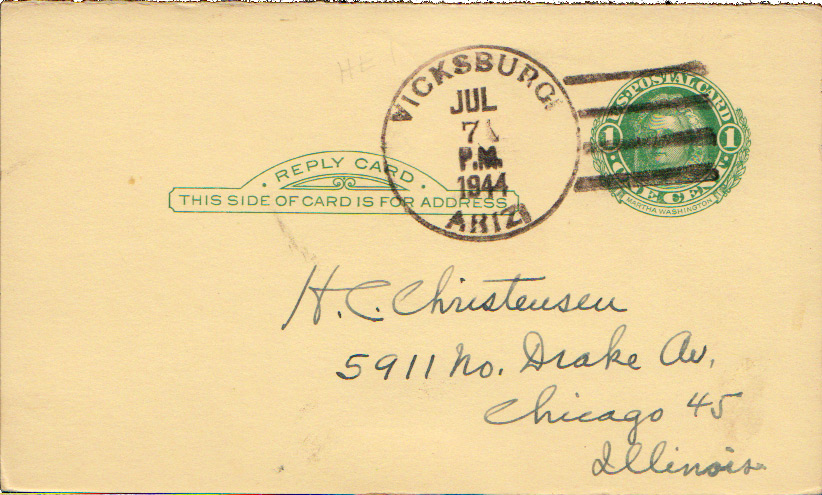 VICKSBURG
JUL
7
P.M.
1944
ARIZ
U.S. POSTAL CARD
1 1
ONE CENT
MARTHA WASHINGTON
REPLY CARD
THIS SIDE OF CARD IS FOR ADDRESS
H. C. Christensen
5911 No. Drake Av.
Chicago 45
Illinois